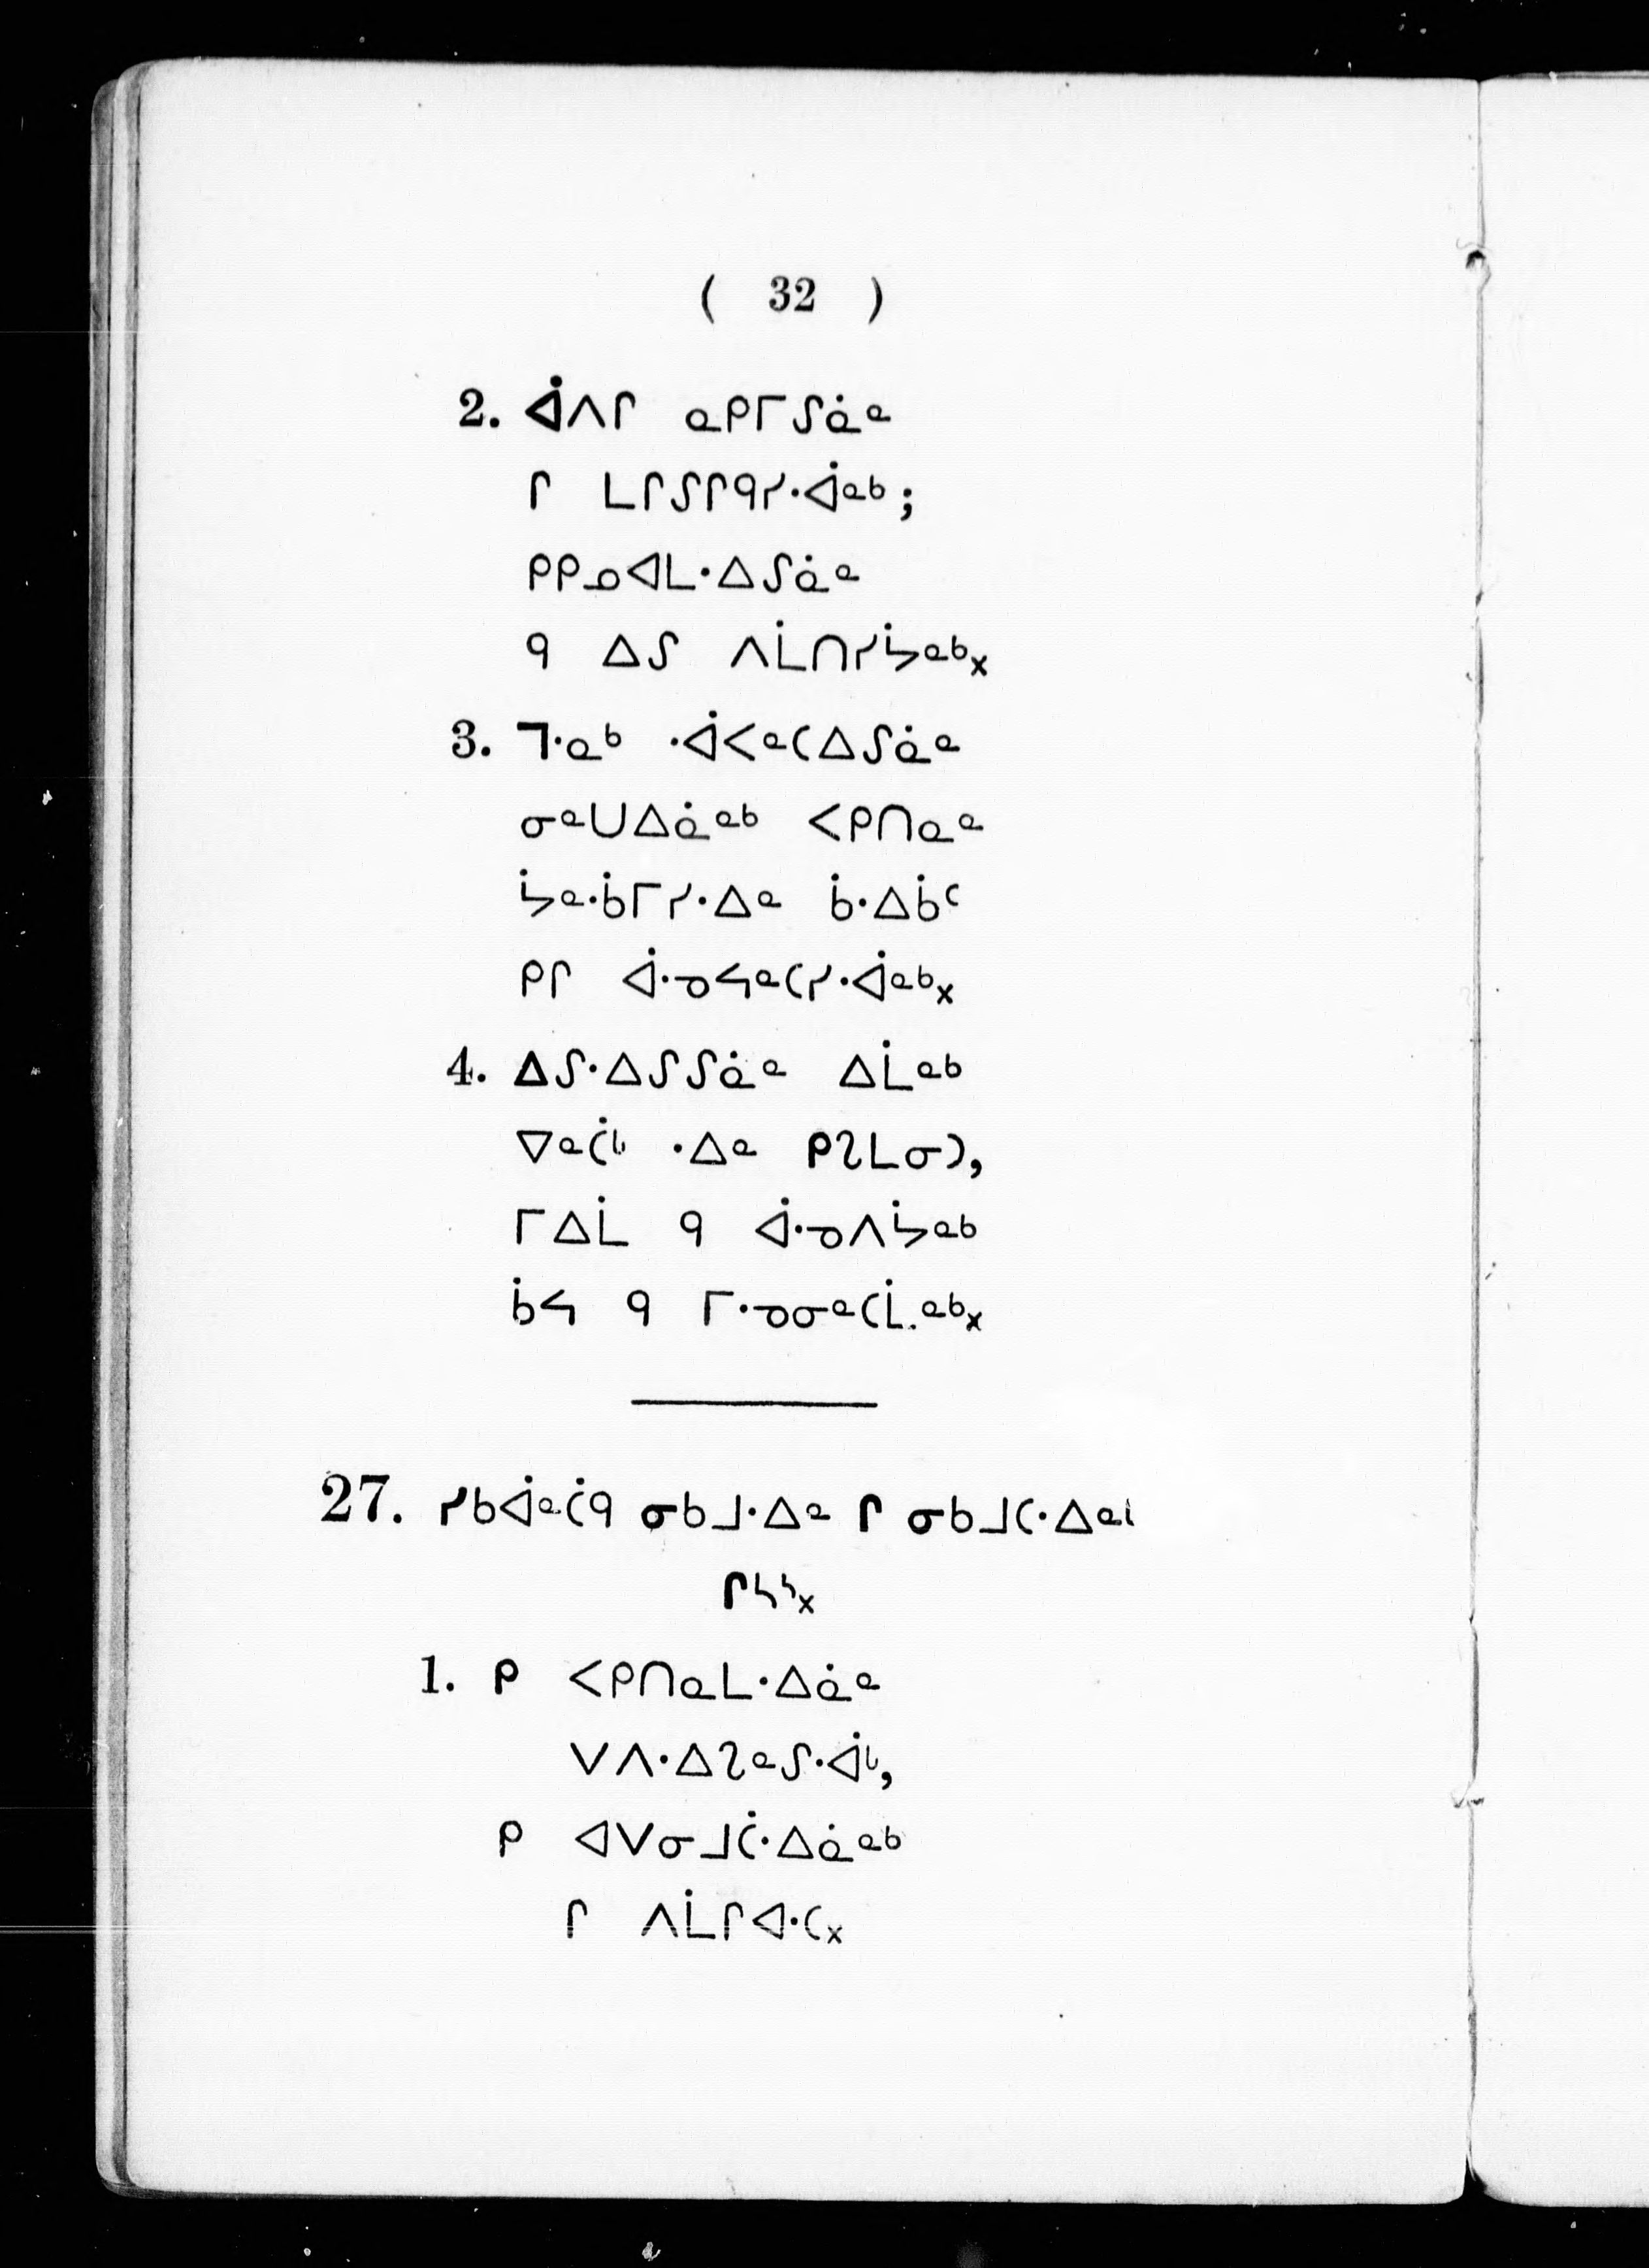 ( 32 )
2. ᐋᐱᒋ ᓇᑭᒥᔑᓈᓐ
ᒋ ᒪᒋᔑᒋᑫᓯᐧᐋᓐᒃ;
ᑭᑭᓄᐊᒪᐧᐃᔑᓈᓐ
ᑫ ᐃᔑ ᐱᒫᑎᓯᔮᓐᒃ᙮
3. ᒣᐧᓇᒃ ᐧᐋᐸᓐᑕᐃᔑᓈᓐ
ᓂᓐᑌᐃᓈᓐᒃ ᐸᑭᑎᓇᓐ
ᔮᓐᐧᑳᒥᓯᐧᐃᓐ ᑳᐧᐃᑳᑦ
ᑭᒋ ᐋᐧᓀᔦᓐᑕᓯᐧᐋᓐᒃ᙮
4. ᐃᔑᐧᐃᔑᔑᓈᓐ ᐃᒫᓐᒃ
ᐁᓐᑖᒡ ᐧᐃᓐ ᑭᔐᒪᓂᑐ,
ᒥᐃᒫ ᑫ ᐋᐧᓀᐱᔮᓐᒃ
ᑳᔦ ᑫ ᒥᐧᓀᓂᓐᑕᒫᓐᒃ᙮
27. ᓯᑲᐋᓐᑖᑫ ᓂᑲᒧᐧᐃᓐ ᒋ ᓂᑲᒧᑕᐧᐃᓐᒡ
ᒋᓴᔅ᙮
1. ᑭ ᐸᑭᑎᓇᒪᐧᐃᓈᓐ
ᐯᐱᐧᐃᔐᓐᔑᐧᐋᒡ,
ᑭ ᐊᐯᓂᒧᑖᐧᐃᓈᓐᒃ
ᒋ ᐱᒫᒋᐊᐧᑕ᙮